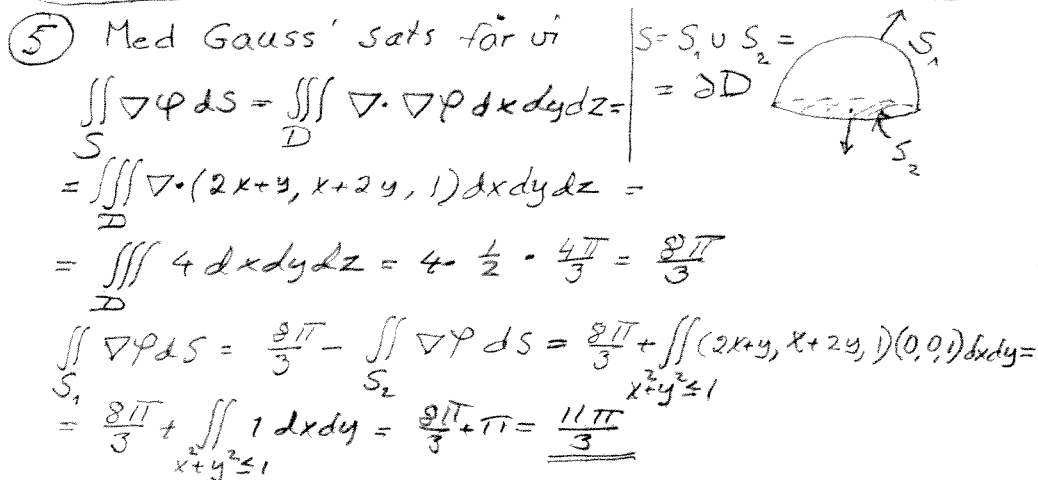 ⑤ Med Gauss' sats får vi
∬_S ∇φ dS = ∭_D ∇·∇φ dxdydz =
S = S₁ ∪ S₂ =
= ∂D
S₁
S₂
= ∭_D ∇·(2x+y, x+2y, 1) dxdydz =
= ∭_D 4 dxdydz = 4· 1/2 · 4π/3 = 8π/3
∬_{S₁} ∇φ dS = 8π/3 − ∬_{S₂} ∇φ dS = 8π/3 + ∬_{x²+y²≤1} (2x+y, x+2y, 1)(0,0,1) dxdy =
= 8π/3 + ∬_{x²+y²≤1} 1 dxdy = 8π/3 + π = 11π/3